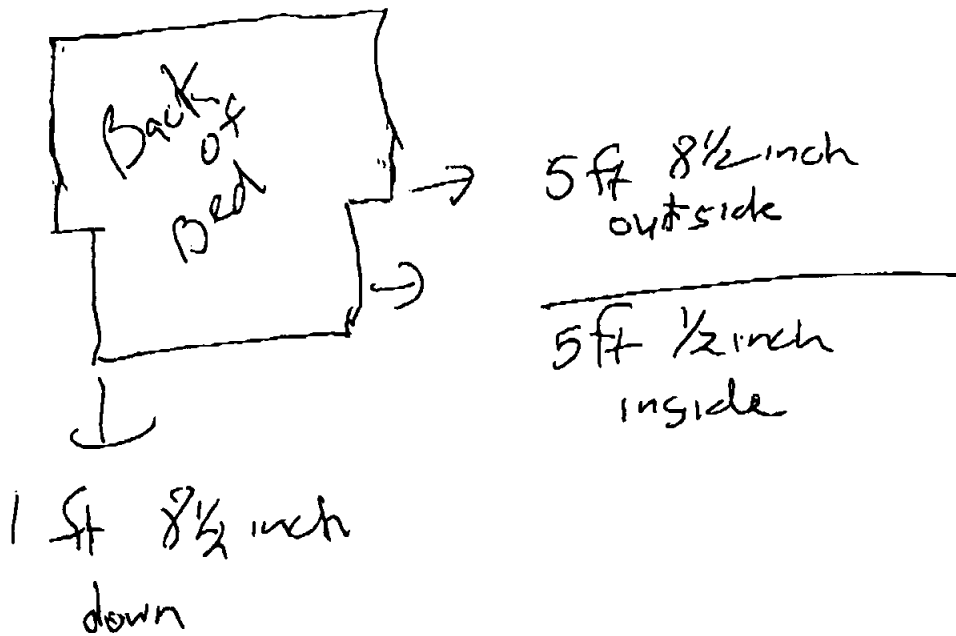 Back
of
Bed
5 ft 8 1/2 inch
outside
5 ft 1/2 inch
inside
1 ft 8 1/2 inch
down